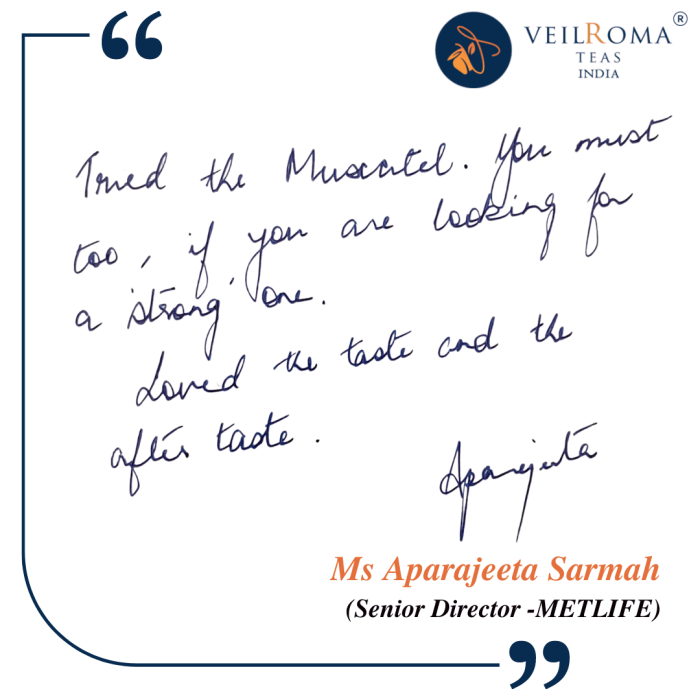 “
VEILROMA®
TEAS
INDIA
Tried the Muscatel. You must
too, if you are looking for
a 'strong' one.
Loved the taste and the
after taste.
Aparajeeta
Ms Aparajeeta Sarmah
(Senior Director -METLIFE)
”